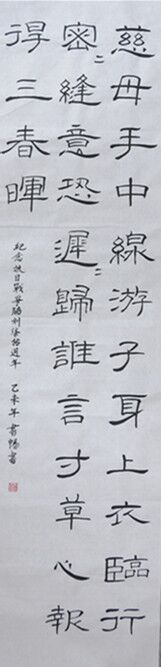 慈母手中線游子身上衣臨行
密〻縫意恐遲〻歸誰言寸草心報
得三春暉
紀念抗日戰爭勝利柒拾週年
乙未年